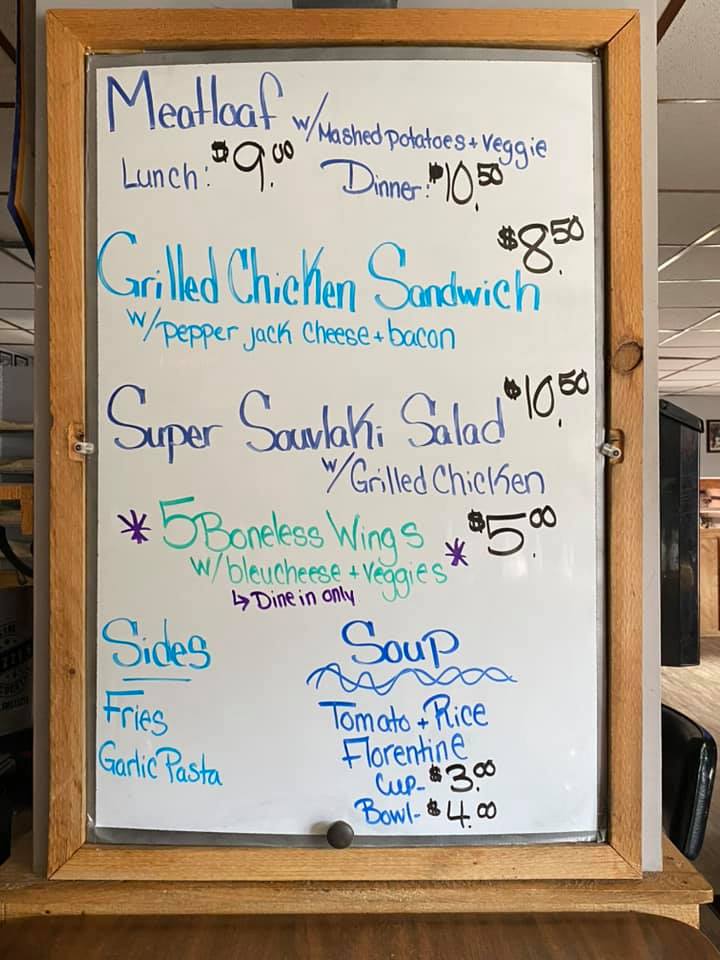 Meatloaf w/Mashed potatoes + veggie
Lunch: $9.00 Dinner: $10.50
$8.50
Grilled Chicken Sandwich
w/pepper jack cheese + bacon
Super Souvlaki Salad $10.50
w/Grilled Chicken
* 5 Boneless Wings * $5.00
w/bleucheese + veggies
↳ Dine in only
Sides
Fries
Garlic Pasta
Soup
Tomato + Rice
Florentine
Cup- $3.00
Bowl- $4.00